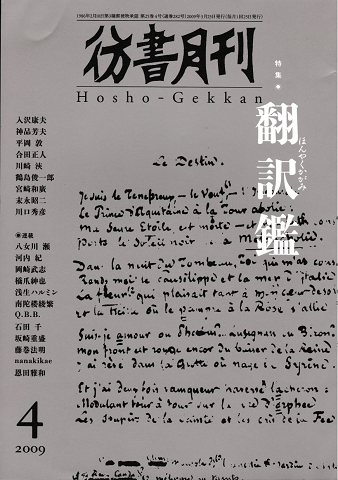 彷書月刊
Hosho-Gekkan
特集●
翻訳鑑
ほんやくかがみ
入沢康夫
神品芳夫
平岡 敦
合田正人
川崎 浹
鶴島俊一郎
宮崎和廣
末永昭二
川口秀彦
●連載
八女川 瀬
河内 紀
岡崎武志
橘爪紳也
浅生ハルミン
南陀楼綾繁
Q.B.B.
石田 千
坂崎重盛
藤巻法明
nanakikae
恩田雅和
4
2009
Le Destin.
Je suis le Tenebreux - le Veuf
Le Prince d'Aquitaine à la Tour abolie
Ma Seule Etoile est morte
Dans la nuit du Tombeau, Toi qui m'as conso
Rends-moi le Pausilippe et la mer d'Italie
La fleur qui plaisait tant à mon cœur deso
et la treille où le pampre à la Rose s'allie
Suis-je amour ou Phoebus Lusignan ou Biron
mon front est rouge encor du baiser de la reine
j'ai rêvé dans la Grotte où nage la Syrène.
Et j'ai deux fois vainqueur traversé l'acheron
Modulant tour à tour sur la lyre d'orphée
les soupirs de la sainte et les cris de la Fée